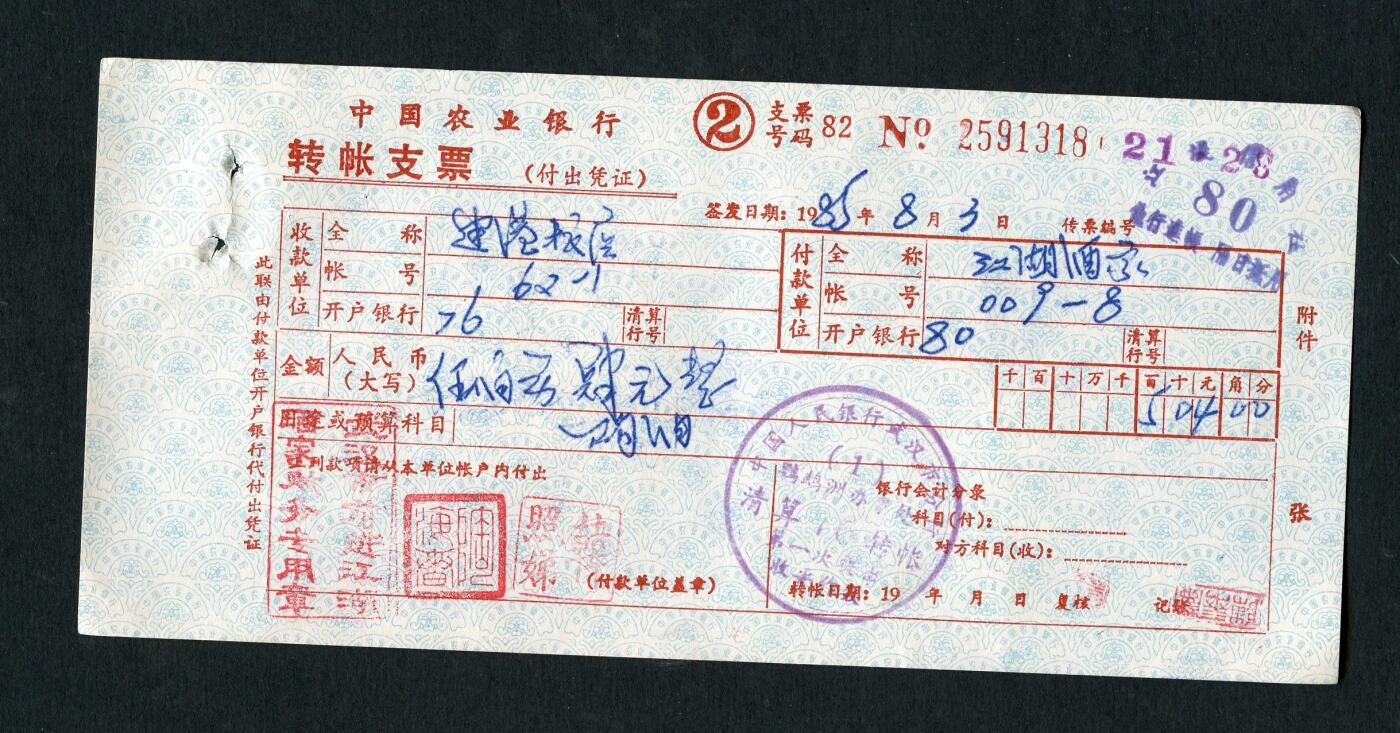 中国农业银行
转帐支票 (付出凭证)
② 支票号码 82 Nº 2591318
21 28
80
签发日期: 1985年8月3日 传票编号
收款单位
全称
帐号 622-1
开户银行 76 清算行号
付款单位
全称 江湖酒家
帐号 009-8
开户银行 80 清算行号
金额 人民币(大写) 伍佰另肆元整
千百十万千百十元角分
50400
用途或预算科目
列款项请从本单位帐户内付出
(付款单位盖章)
银行会计分录
科目(付):
对方科目(收):
转帐日期: 19 年 月 日 复核 记账
此联由付款单位开户银行代付出凭证
附件
张
中国人民银行武汉市
(1)
鹦鹉洲办事处
清算 转帐
第一次
酒家财务专用章